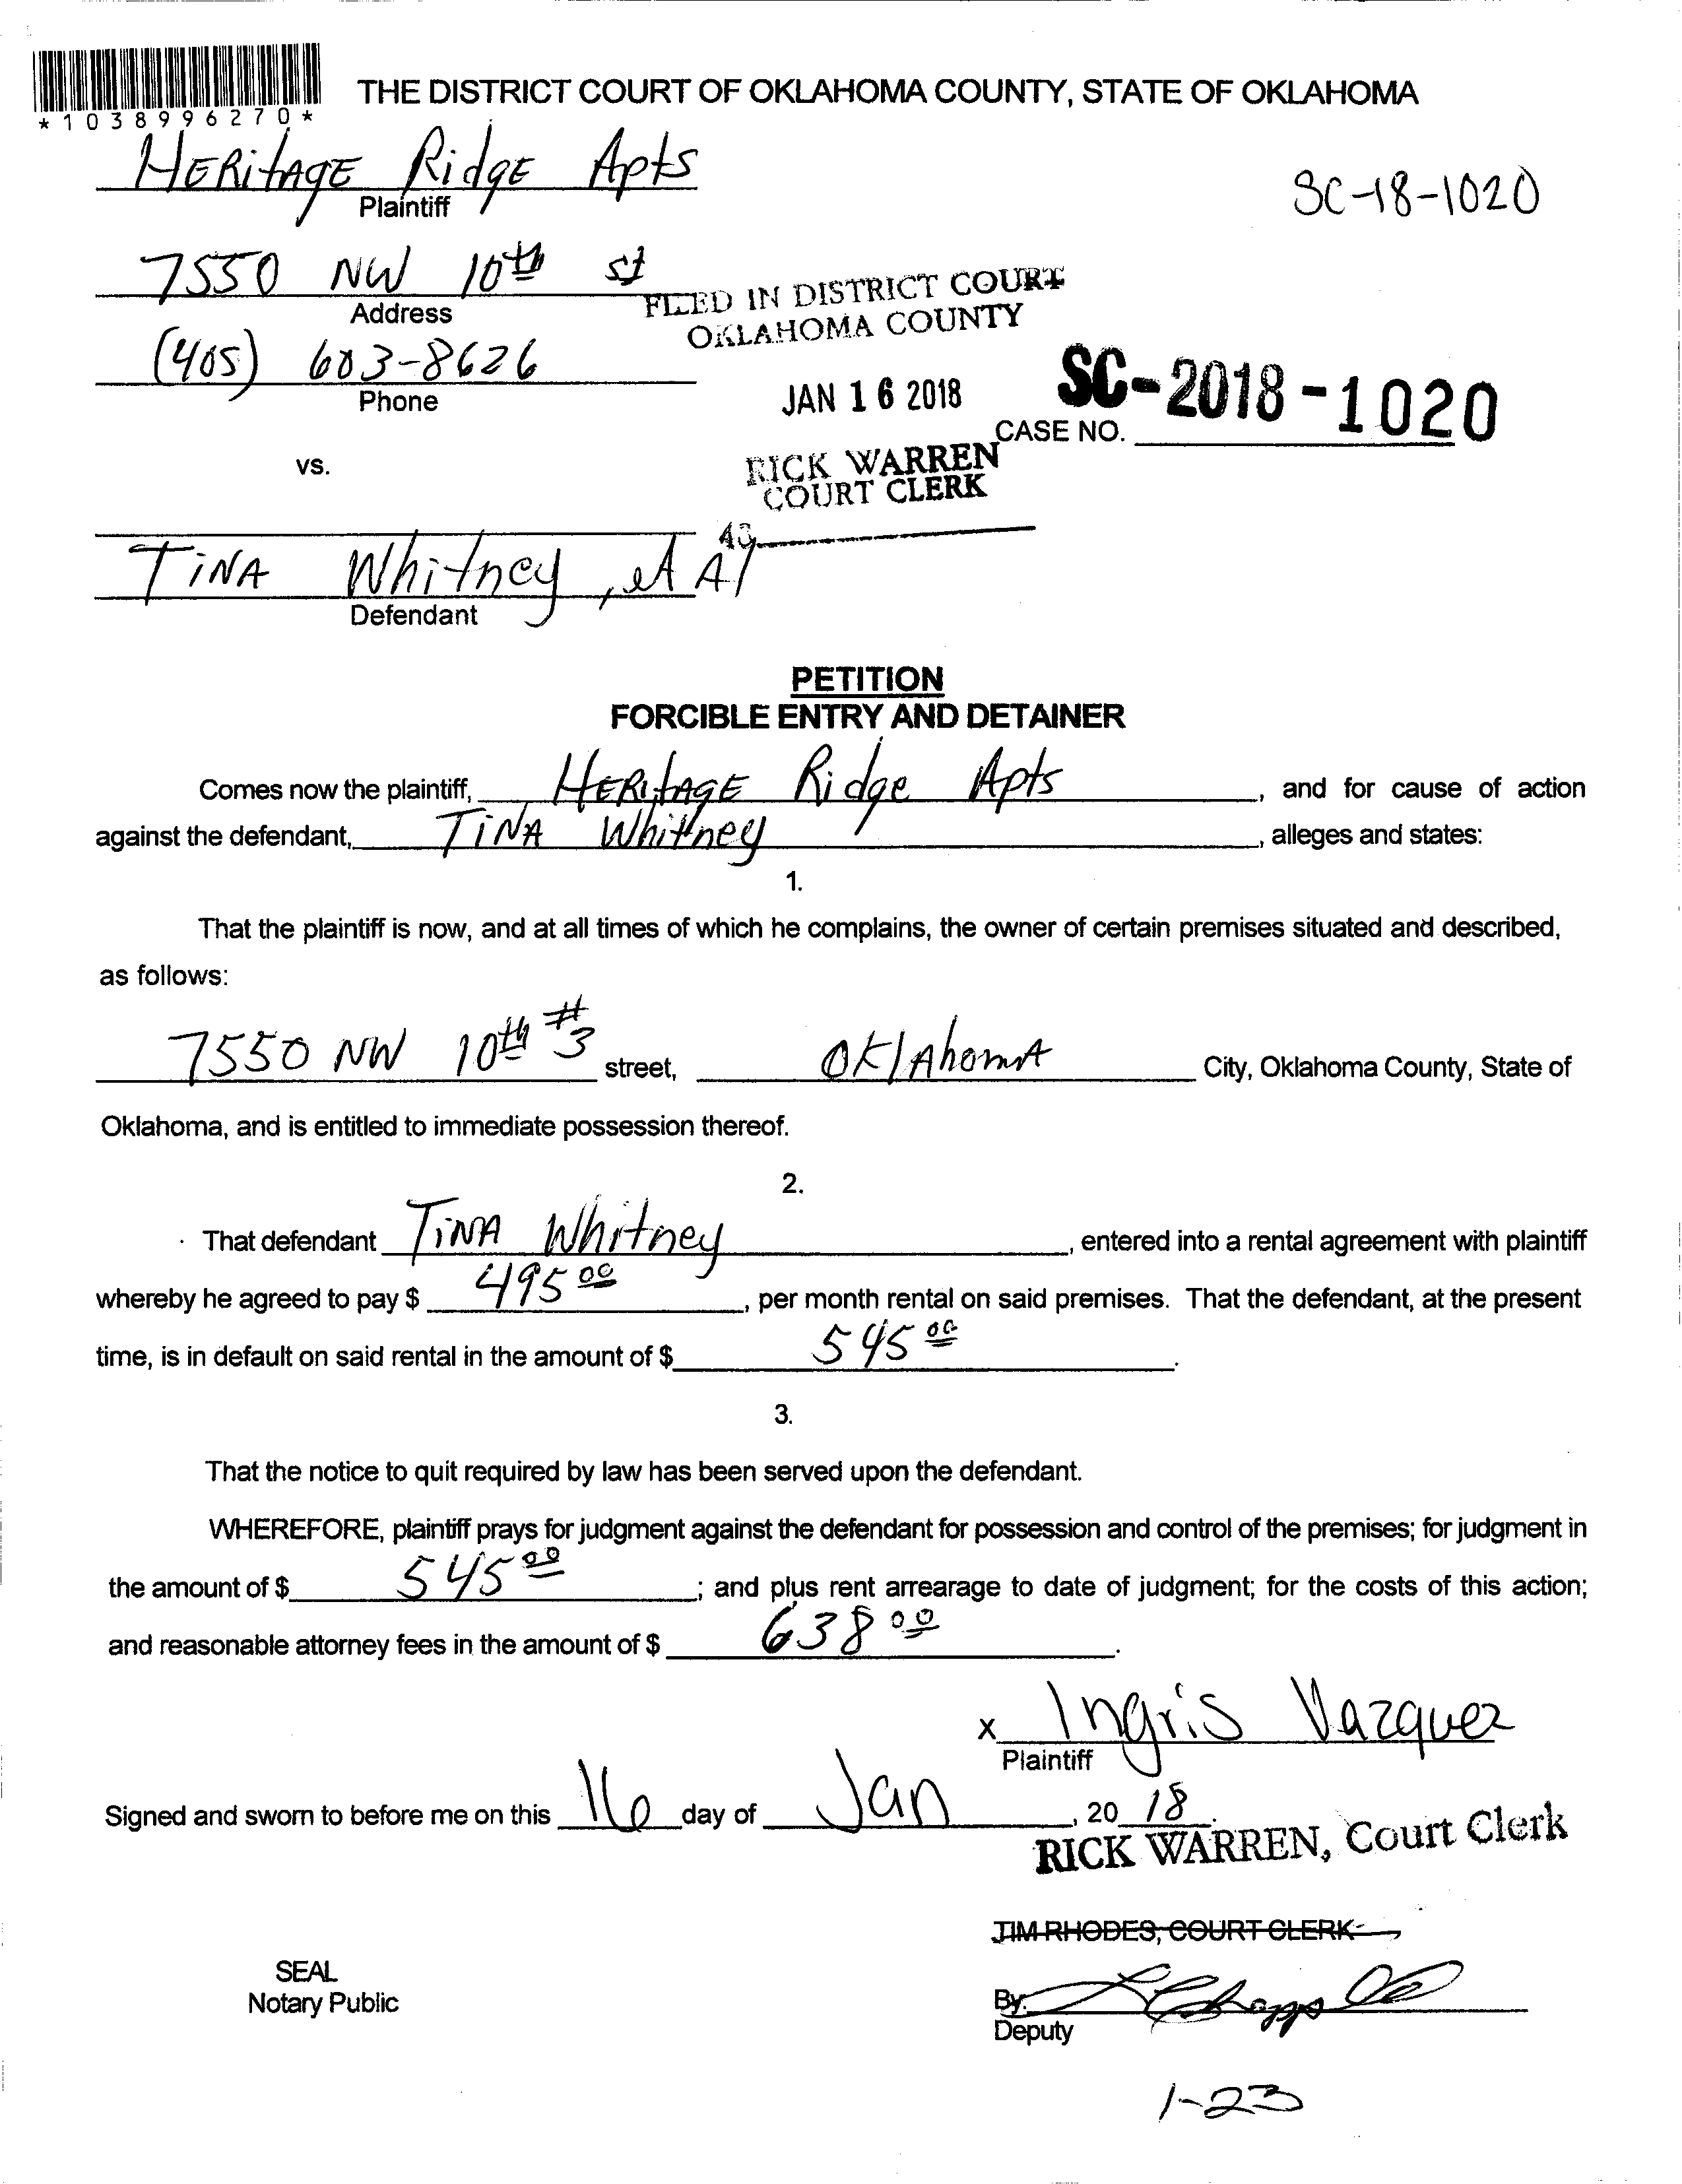 *1038996270*
THE DISTRICT COURT OF OKLAHOMA COUNTY, STATE OF OKLAHOMA
HERitAGE RidgE Apts
Plaintiff
SC-18-1020
7550 NW 10th st
Address
FILED IN DISTRICT COURT
OKLAHOMA COUNTY
(405) 603-8626
Phone
JAN 16 2018
SC-2018-1020
CASE NO.
vs.
RICK WARREN
COURT CLERK
TiNA Whitney, et Al
Defendant
PETITION
FORCIBLE ENTRY AND DETAINER
Comes now the plaintiff, HERitAGE Ridge Apts, and for cause of action
against the defendant, TiNA Whitney, alleges and states:
1.
That the plaintiff is now, and at all times of which he complains, the owner of certain premises situated and described,
as follows:
7550 NW 10th #3 street, OklAhomA City, Oklahoma County, State of
Oklahoma, and is entitled to immediate possession thereof.
2.
That defendant TiNA Whitney, entered into a rental agreement with plaintiff
whereby he agreed to pay $ 495 00, per month rental on said premises. That the defendant, at the present
time, is in default on said rental in the amount of $ 545 00.
3.
That the notice to quit required by law has been served upon the defendant.
WHEREFORE, plaintiff prays for judgment against the defendant for possession and control of the premises; for judgment in
the amount of $ 545 00; and plus rent arrearage to date of judgment; for the costs of this action;
and reasonable attorney fees in the amount of $ 638 00.
x Ingris Vazquez
Plaintiff
Signed and sworn to before me on this 16 day of Jan, 20 18.
RICK WARREN, Court Clerk
JIM RHODES, COURT CLERK
SEAL
Notary Public
By:
Deputy
1-23